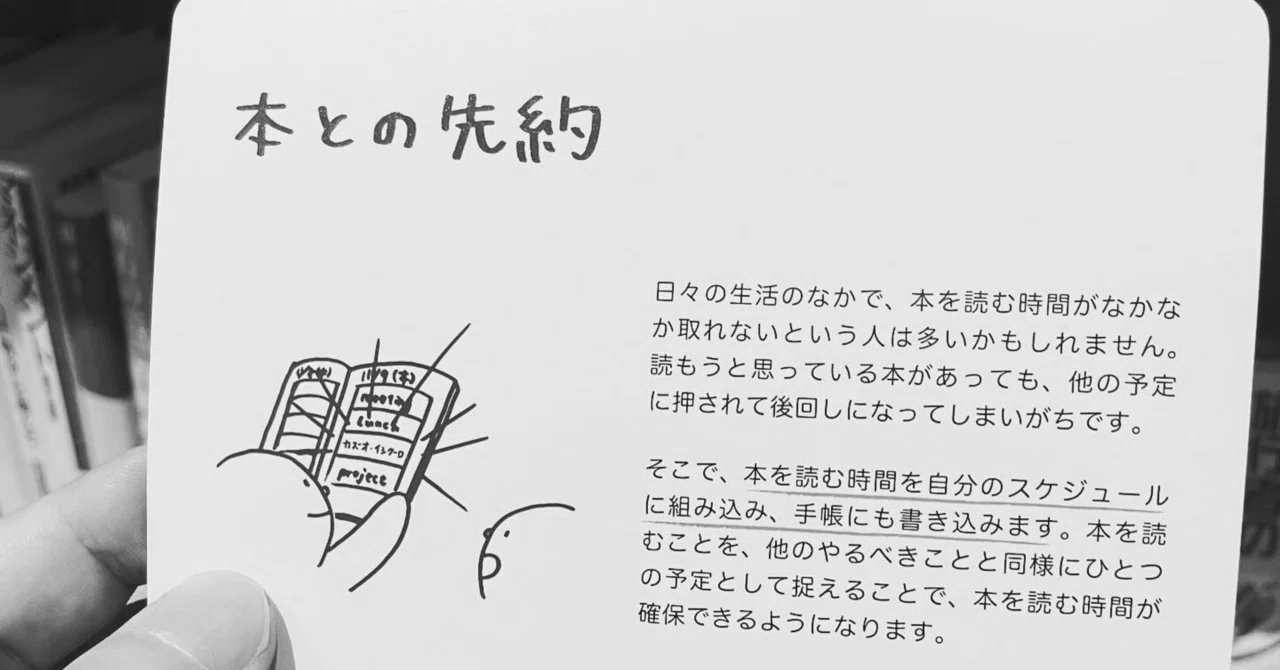 本との先約
11/9(木)
meeting
Lunch
カズオ・イシグロ
project
日々の生活のなかで、本を読む時間がなかな
か取れないという人は多いかもしれません。
読もうと思っている本があっても、他の予定
に押されて後回しになってしまいがちです。
そこで、本を読む時間を自分のスケジュール
に組み込み、手帳にも書き込みます。本を読
むことを、他のやるべきことと同様にひとつ
の予定として捉えることで、本を読む時間が
確保できるようになります。